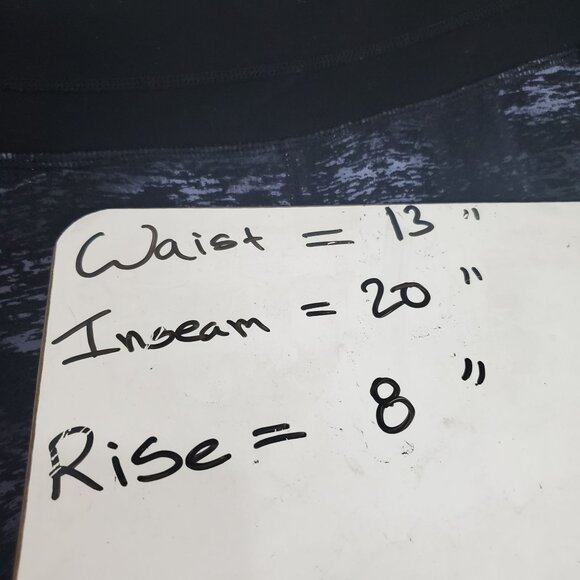 Waist = 13 "
Inseam = 20 "
Rise = 8 "